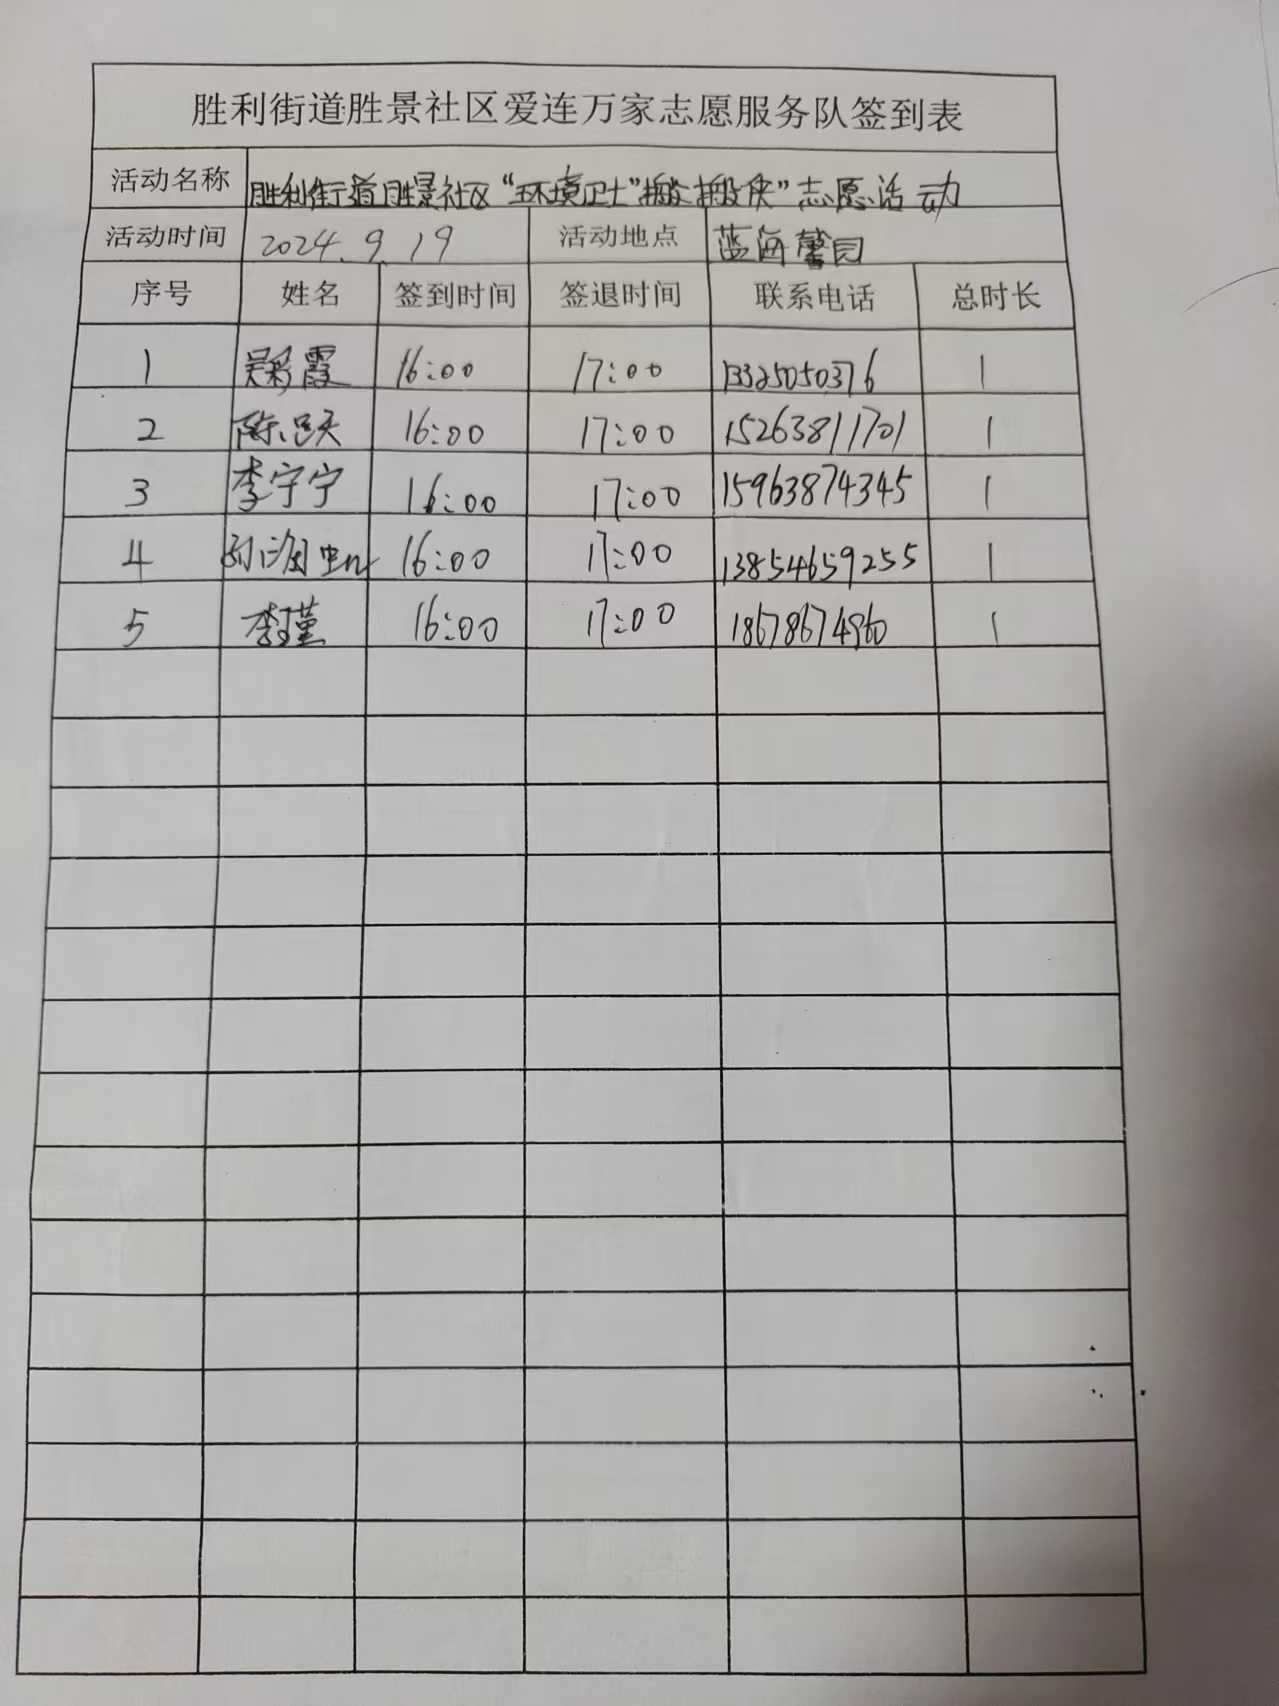 胜利街道胜景社区爱连万家志愿服务队签到表
活动名称 胜利街道胜景社区“环境卫士”搬搬侠”志愿活动
活动时间 2024.9.19 活动地点 蓝海馨园
序号 姓名 签到时间 签退时间 联系电话 总时长
1 吴彩霞 16:00 17:00 13325050376 1
2 16:00 17:00 15263811701 1
3 李宁宁 16:00 17:00 15963874345 1
4 16:00 17:00 13854659255 1
5 李瑾 16:00 17:00 18678674960 1